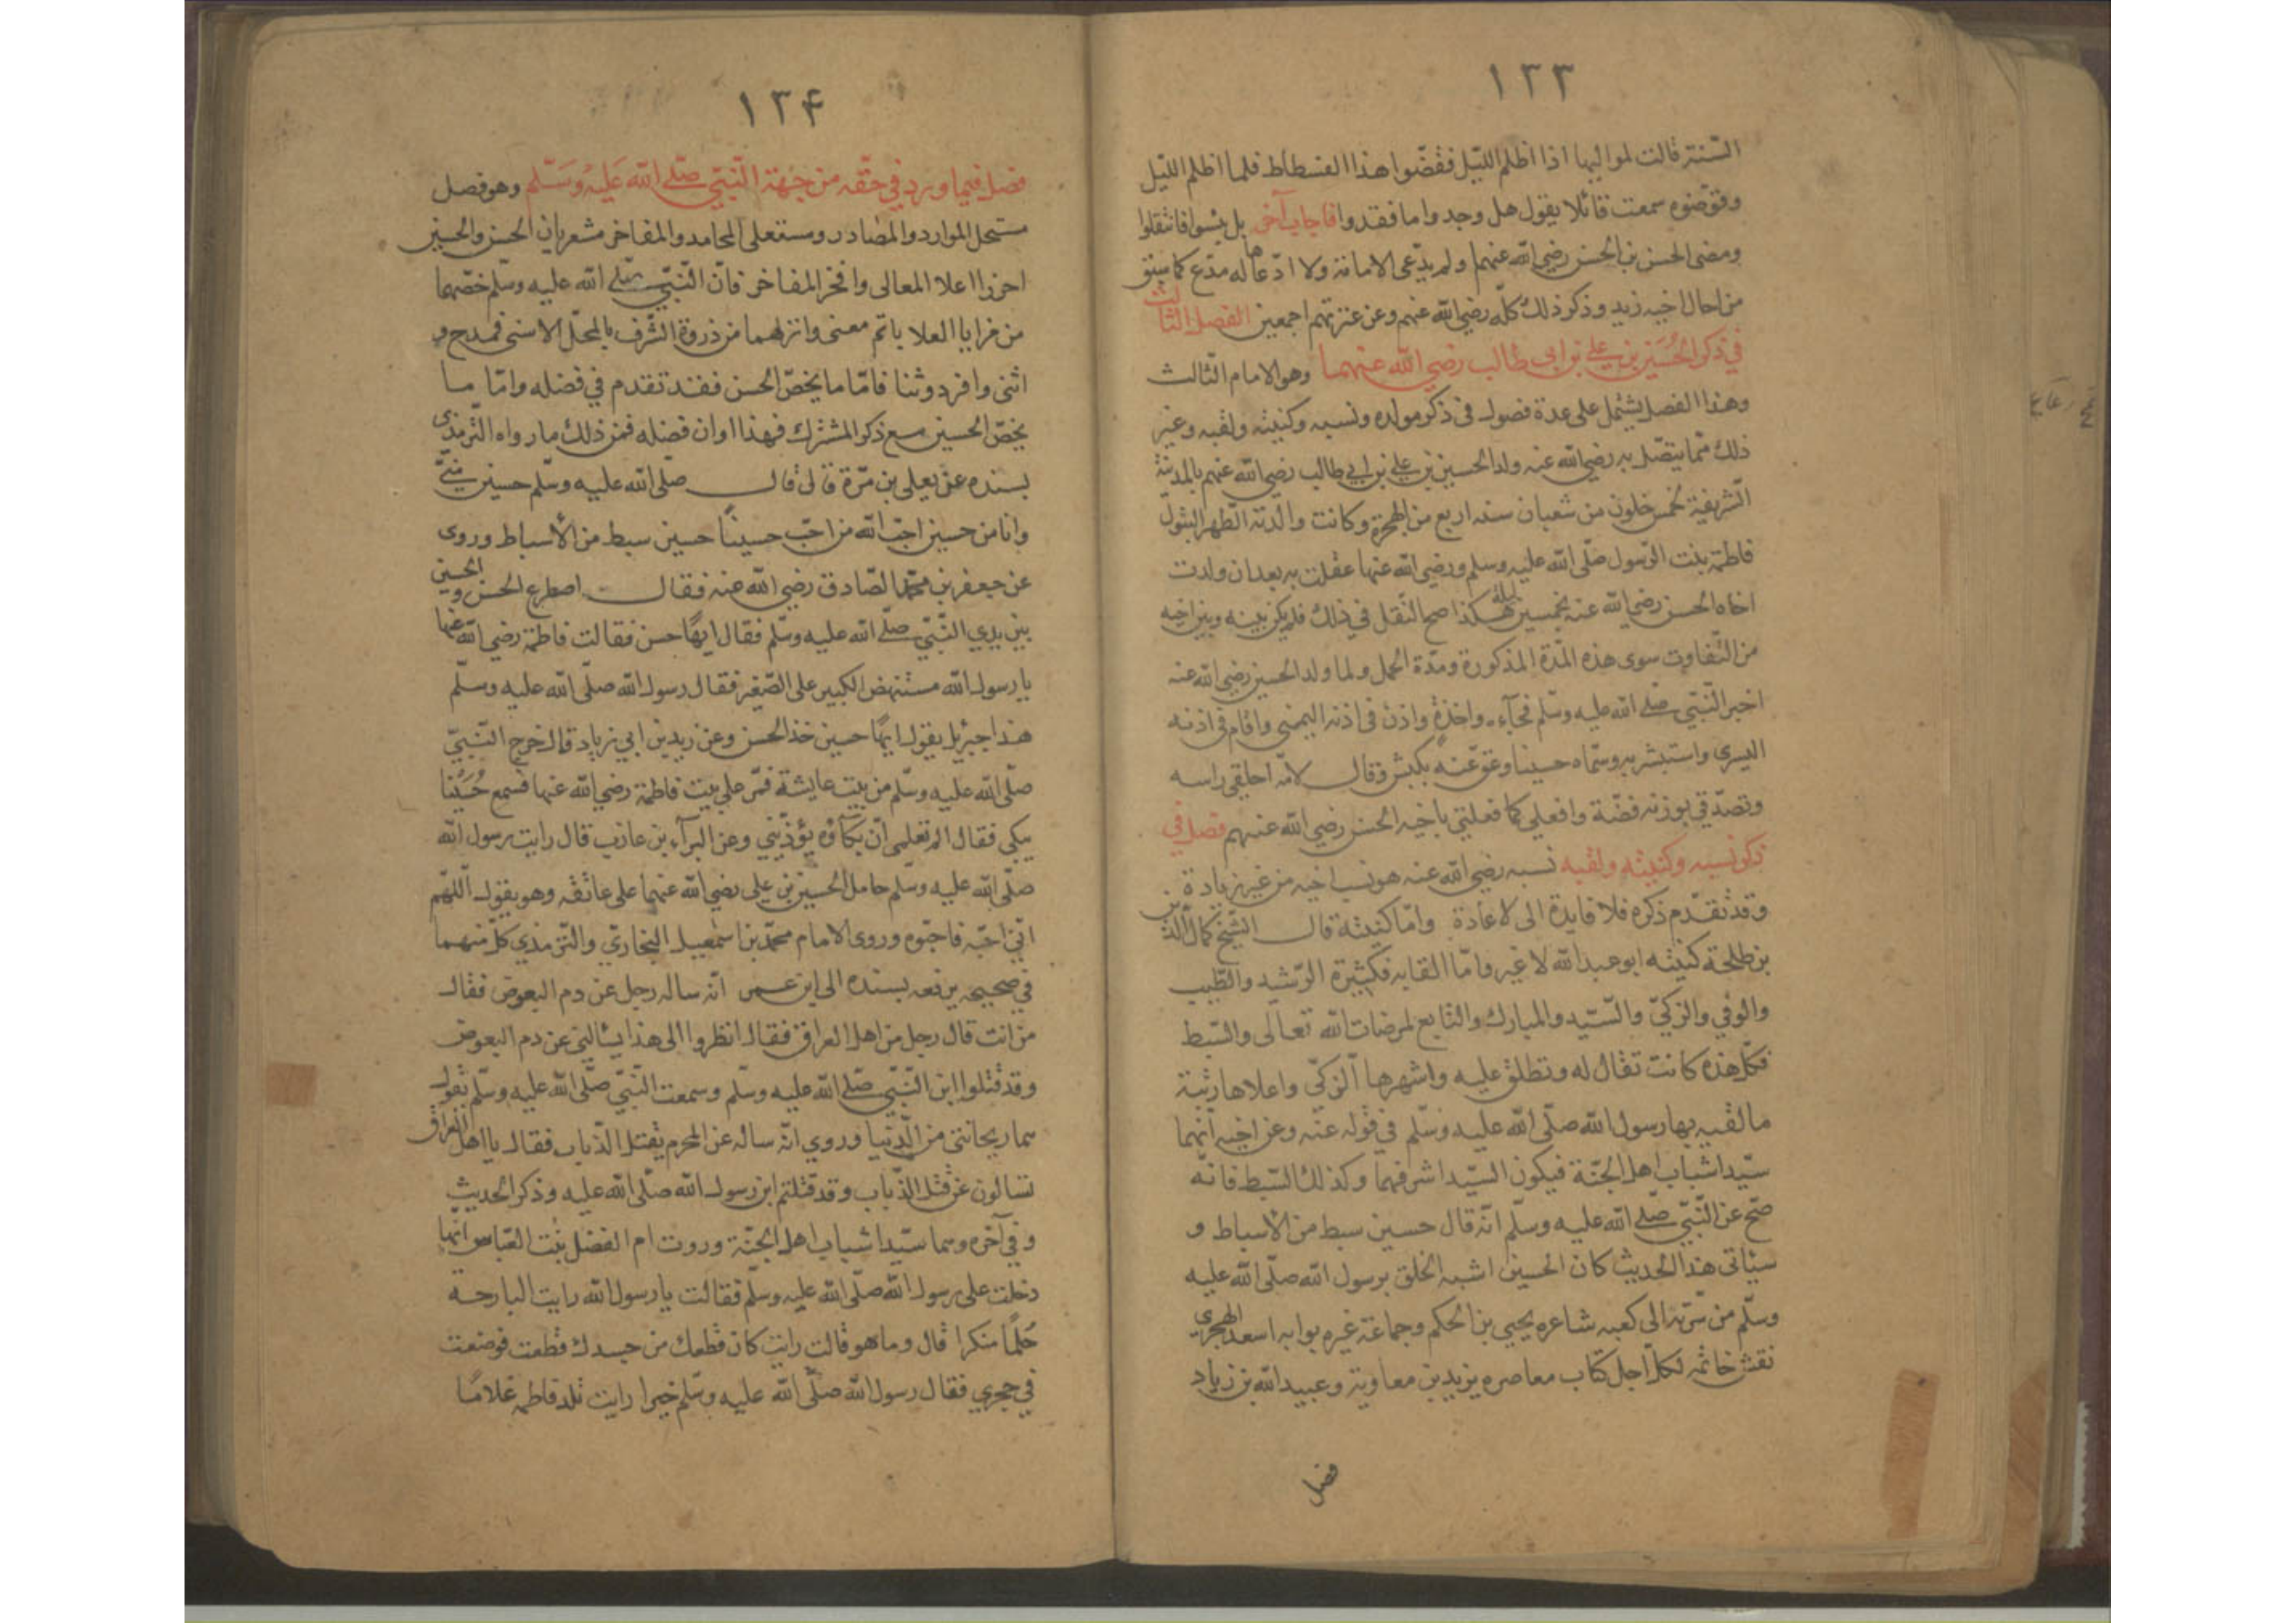 ١٣٣
السّنة قالت لمواليها اذا اظلم اللّيل فقضّوا هذا الفسطاط فلما اظلم اللّيل
وقوّضوه سمعت قائلا يقول هل وجدوا ما فقدوا فاجاب آخر بل يئسوا فانقلبوا
ومضى الحسن بن الحسن رضي الله عنهما ولم يدّعى الامامة ولا ادّعاها له مدّع كما سبق
من احال اخيه زيد وذكر ذلك كلّه رضي الله عنهم وعن عترتهم اجمعين الفصل الثالث
في ذكر الحُسَين بن علي بن ابى طالب رضي الله عنهما وهو الامام الثّالث
وهذا الفصل يشتمل على عدة فصول فى ذكر مولده ونسبه وكنيته ولقبه وغير
ذلك ممّا يتصّل به رضي الله عنه ولد الحسين بن علي بن ابي طالب رضي الله عنهم بالمدينة
الشّريفة لخمس خلون من شعبان سنه اربع من الهجرة وكانت والدته الطّهر البتول
فاطمة بنت الرّسول صلّى الله عليه وسلم ورضي الله عنها علقت به بعد ان ولدت
اخاه الحسن رضي الله عنه بخمسين ليلة هكذا صح النّقل في ذلك فلم يكن بينه وبين اخيه
من التّفاوت سوى هذه المدّة المذكورة ومدّة الحمل ولما ولد الحسين رضي الله عنه
اخبر النّبي صلّى الله عليه وسلّم فجآءه واخذه واذن فى اذنه اليمنى واقام فى اذنه
اليسرى واستبشر به وسمّاه حسينا وعقّ عنه بكبش وقال لامّه احلقى راسه
وتصدّقي بوزنه فضّة وافعلي كما فعلتي باخيه الحسن رضي الله عنهم فصل في
ذكر نسبه وكنيته ولقبه نسبه رضي الله عنه هو نسب اخيه من غير زيادة
وقد تقدّم ذكره فلا فايدة الى لاعادة وامّا كنيته قال الشّيخ كمال الدّين
بن طلحة كنيته ابو عبدالله لا غير وامّا القابه فكثيرة الرّشيد والطّيب
والوفي والزكيّ والسّيد والمبارك والتّابع لمرضات الله تعالى والسّبط
فكلّ هذه كانت تقال له وتطلق عليه واشهرها الزّكيّ واعلاها رتبة
ما لقّبه بها رسول الله صلّى الله عليه وسلّم في قوله عنه وعن اخيه انّهما
سيّدا شباب اهل الجنّة فيكون السيّد اشرفهما وكذلك السّبط فانّه
صحّ عن النّبيّ صلّى الله عليه وسلّم انّه قال حسين سبط من الاسباط و
سيأتى هذا الحديث كان الحسين اشبه الخلق برسول الله صلّى الله عليه
وسلّم من سرّته الى كعبه شاعره يحيي بن الحكم وجماعة غيره بوابه اسعد الهجري
نقش خاتمه لكلّ اجل كتاب معاصره يزيد بن معاوية وعبيدالله بن زياد
فصل
١٣۴
فصل فيما ورد في حقّه من جهة النّبيّ صلّى الله عَليه وَسَلّم وهو فصل
مستحل الموارد والمصادر ومستعلى المحامد والمفاخر مشعر بان الحسن والحسين
احرزا اعلا المعالى وافخر المفاخر فانّ النّبيّ صلّى الله عليه وسلّم خصّهما
من مزايا العلا باتم معنى وانزلهما من ذروة الشّرف بالمحلّ الاسنى فمدح و
اثنى وافرد وثنا فامّا ما يخصّ الحسن فقد تقدم في فضله وامّا ما
يخصّ الحسين مع ذكر المشترك فهذا اوان فضله فمن ذلك ما رواه التّرمذى
بسنده عن يعلى بن مرّة قال قال صلّى الله عليه وسلّم حسين منّي
وانا من حسين احبّ الله من احبّ حسيناً حسين سبط من الأسباط وروى
عن جعفر بن محمّد الصّادق رضي الله عنه فقال اصطرع الحسن والحسين
بين يدي النّبيّ صلّى الله عليه وسلّم فقال ايهًا حسن فقالت فاطمة رضي الله عنها
يا رسول الله مستنهض الكبير على الصّغير فقال رسول الله صلّى الله عليه وسلّم
هذا جبريل يقول ايهًا حسين خذ الحسن وعن زيد بن ابي زياد قال خرج النّبيّ
صلّى الله عليه وسلّم من بيت عايشة فمرّ على بيت فاطمة رضي الله عنها فسمع حُسَيْنا
يبكى فقال الم تعلمى انّ بكآؤه يؤذيني وعن البرآء بن عازب قال رايت رسول الله
صلّى الله عليه وسلّم حامل الحسين بن علي رضي الله عنهما على عاتقه وهو يقول اللّهمّ
انّي احبّه فاحبّوه وروى الامام محمّد بن اسمعيل البخاريّ والتّرمذي كلّ منهما
في صحيحه يرفعه بسنده الى ابن عمر انّه ساله رجل عن دم البعوض فقال
من انت قال رجل من اهل العراق فقال انظروا الى هذا يسالني عن دم البعوض
وقد قتلوا ابن النّبيّ صلّى الله عليه وسلّم وسمعت النّبيّ صلّى الله عليه وسلّم يقول
هما ريحانتى من الدّنيا وروي انّه ساله عن المحرم يقتل الذّباب فقال يا اهل العراق
تسالون عن قتل الذّباب وقد قتلتم ابن رسول الله صلّى الله عليه وذكر الحديث
وفي آخره وهما سيّدا شباب اهل الجنّة وروت ام الفضل بنت العبّاس انّها
دخلت على رسول الله صلّى الله عليه وسلّم فقالت يا رسول الله رايت البارحه
حُلمًا منكرا قال وما هو قالت رايت كان قطعك من جسدك قطعت فوضعت
في حجري فقال رسول الله صلّى الله عليه وسلّم خيرا رايت تلد فاطمه غلامًا